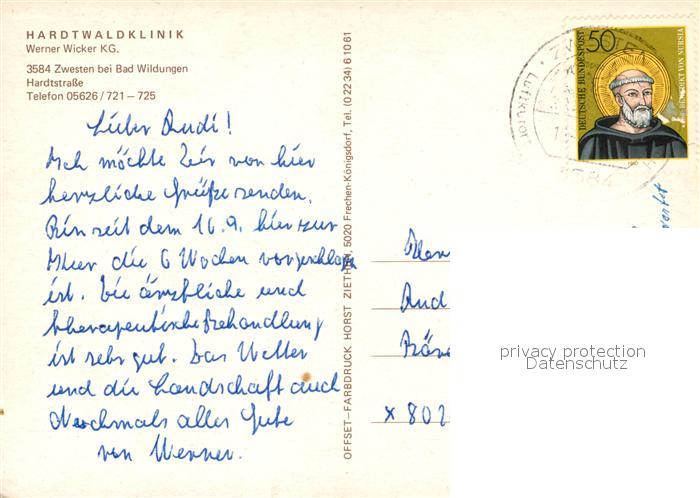 HARDTWALDKLINIK
Werner Wicker KG.
3584 Zwesten bei Bad Wildungen
Hardtstraße
Telefon 05626 / 721 – 725
Lieber Rudi!
Ich möchte Dir von hier
herzliche Grüße senden.
Bin seit dem 16.9. hier zur
Kur die 6 Wochen vorgeschlagen
ist. Die ärztliche und
therapeutische Behandlung
ist sehr gut. Das Wetter
und die Landschaft auch
Nochmals alles Gute
von Werner.
OFFSET–FARBDRUCK HORST ZIETHEN, 5020 Frechen-Königsdorf, Tel. (02234) 61061
50
DEUTSCHE BUNDESPOST
BENEDIKT VON NURSIA
ZWESTEN
Luftkurort
3584
Herr
Rud
x 802
privacy protection
Datenschutz